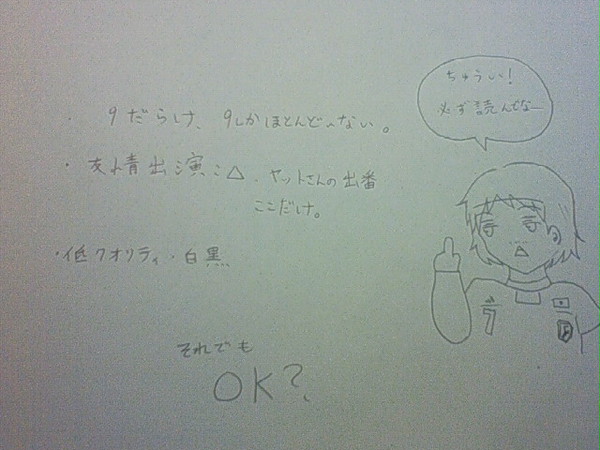 ちゅうい!
必ず読んでなー
・9だらけ、9しかほとんどいない。
・友情出演:△、ヤットさんの出番
ここだけ。
・低クオリティ・白黒
それでも
OK?
7